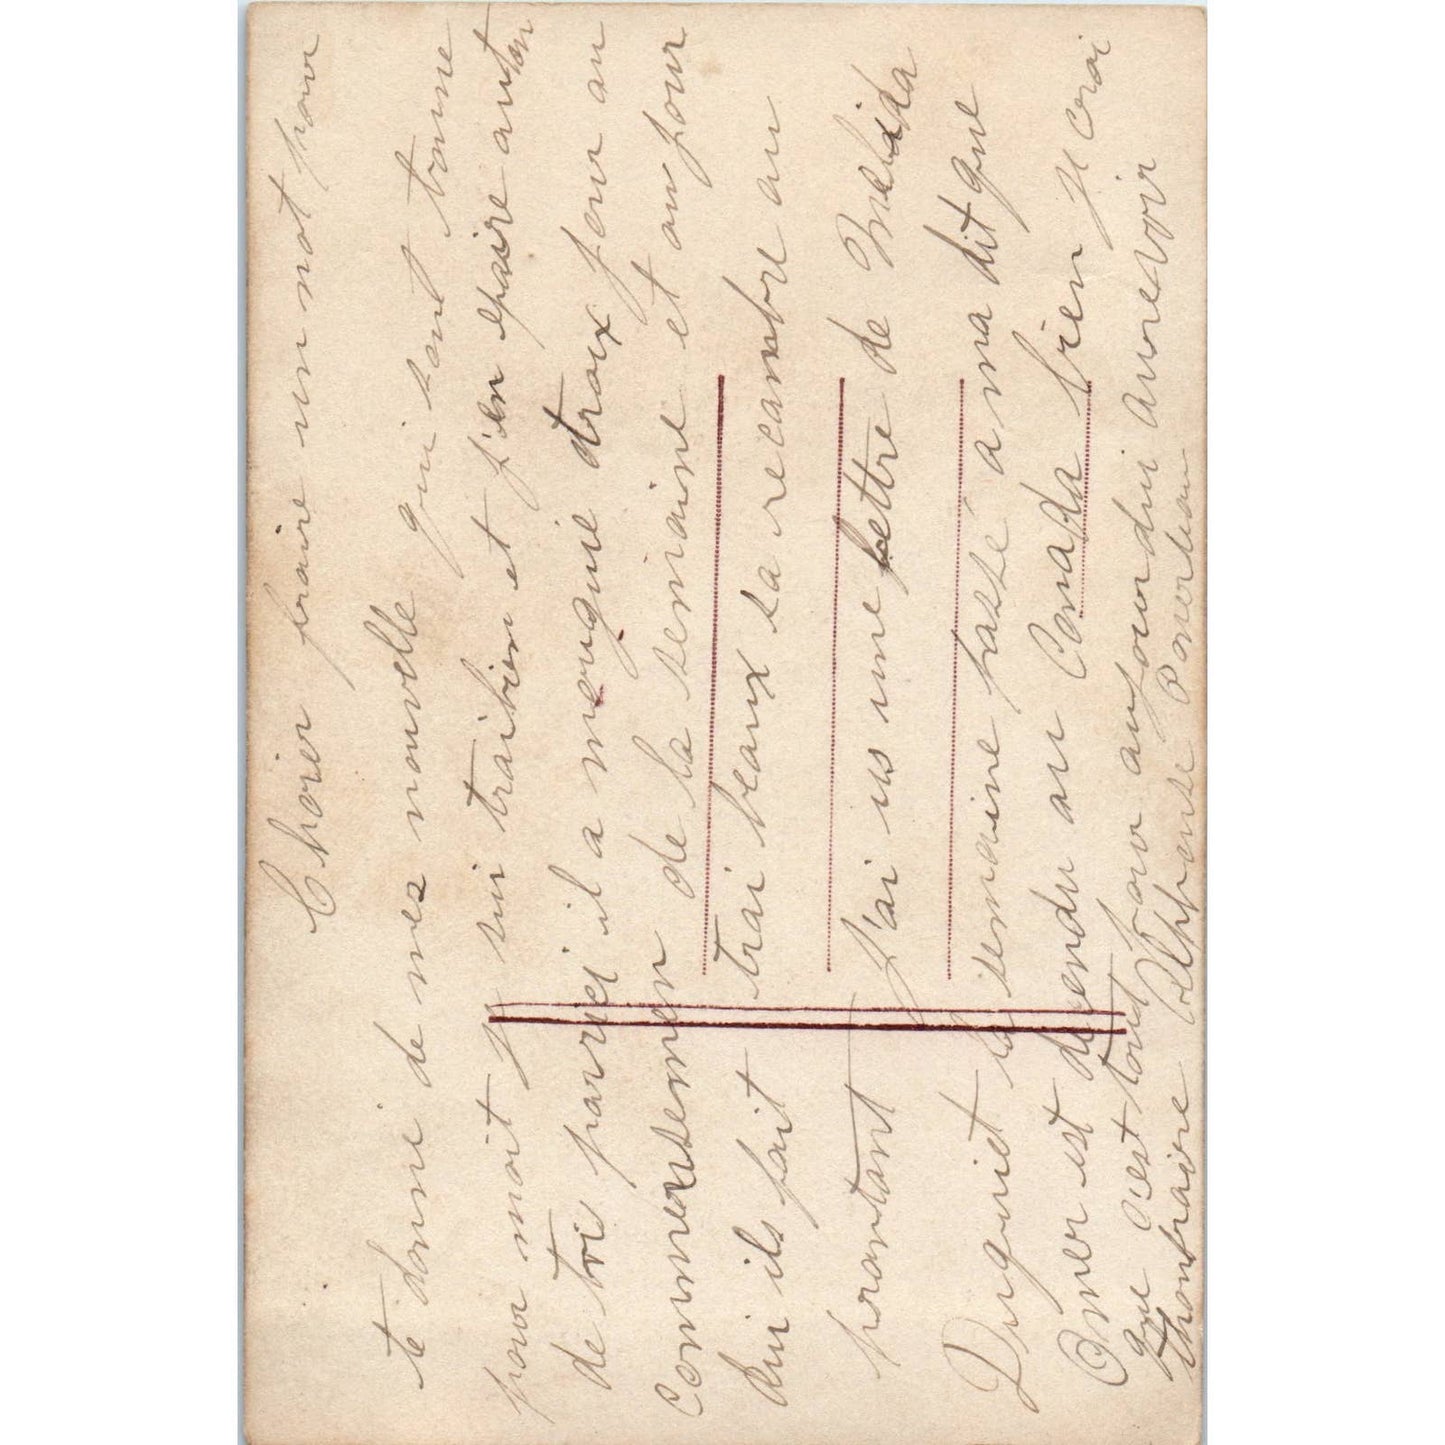 Chier fraire un mot pour
te donné de mes nouvelle qui sont bonne
pour moit je sui traibien et j'en espaire auton
de toi parrici il a mouguie droix jour au
commensemen de la semaine et aujour
dui ils fait trai beaux sa recambre au
prantant J'ai us une lettre de Melida
Duquiet la semaine passé a ma dit que
Omer est desendu au Canada bien je croi
que c'est tout pour aujourdui aurevoir
thonfraire Alphonse